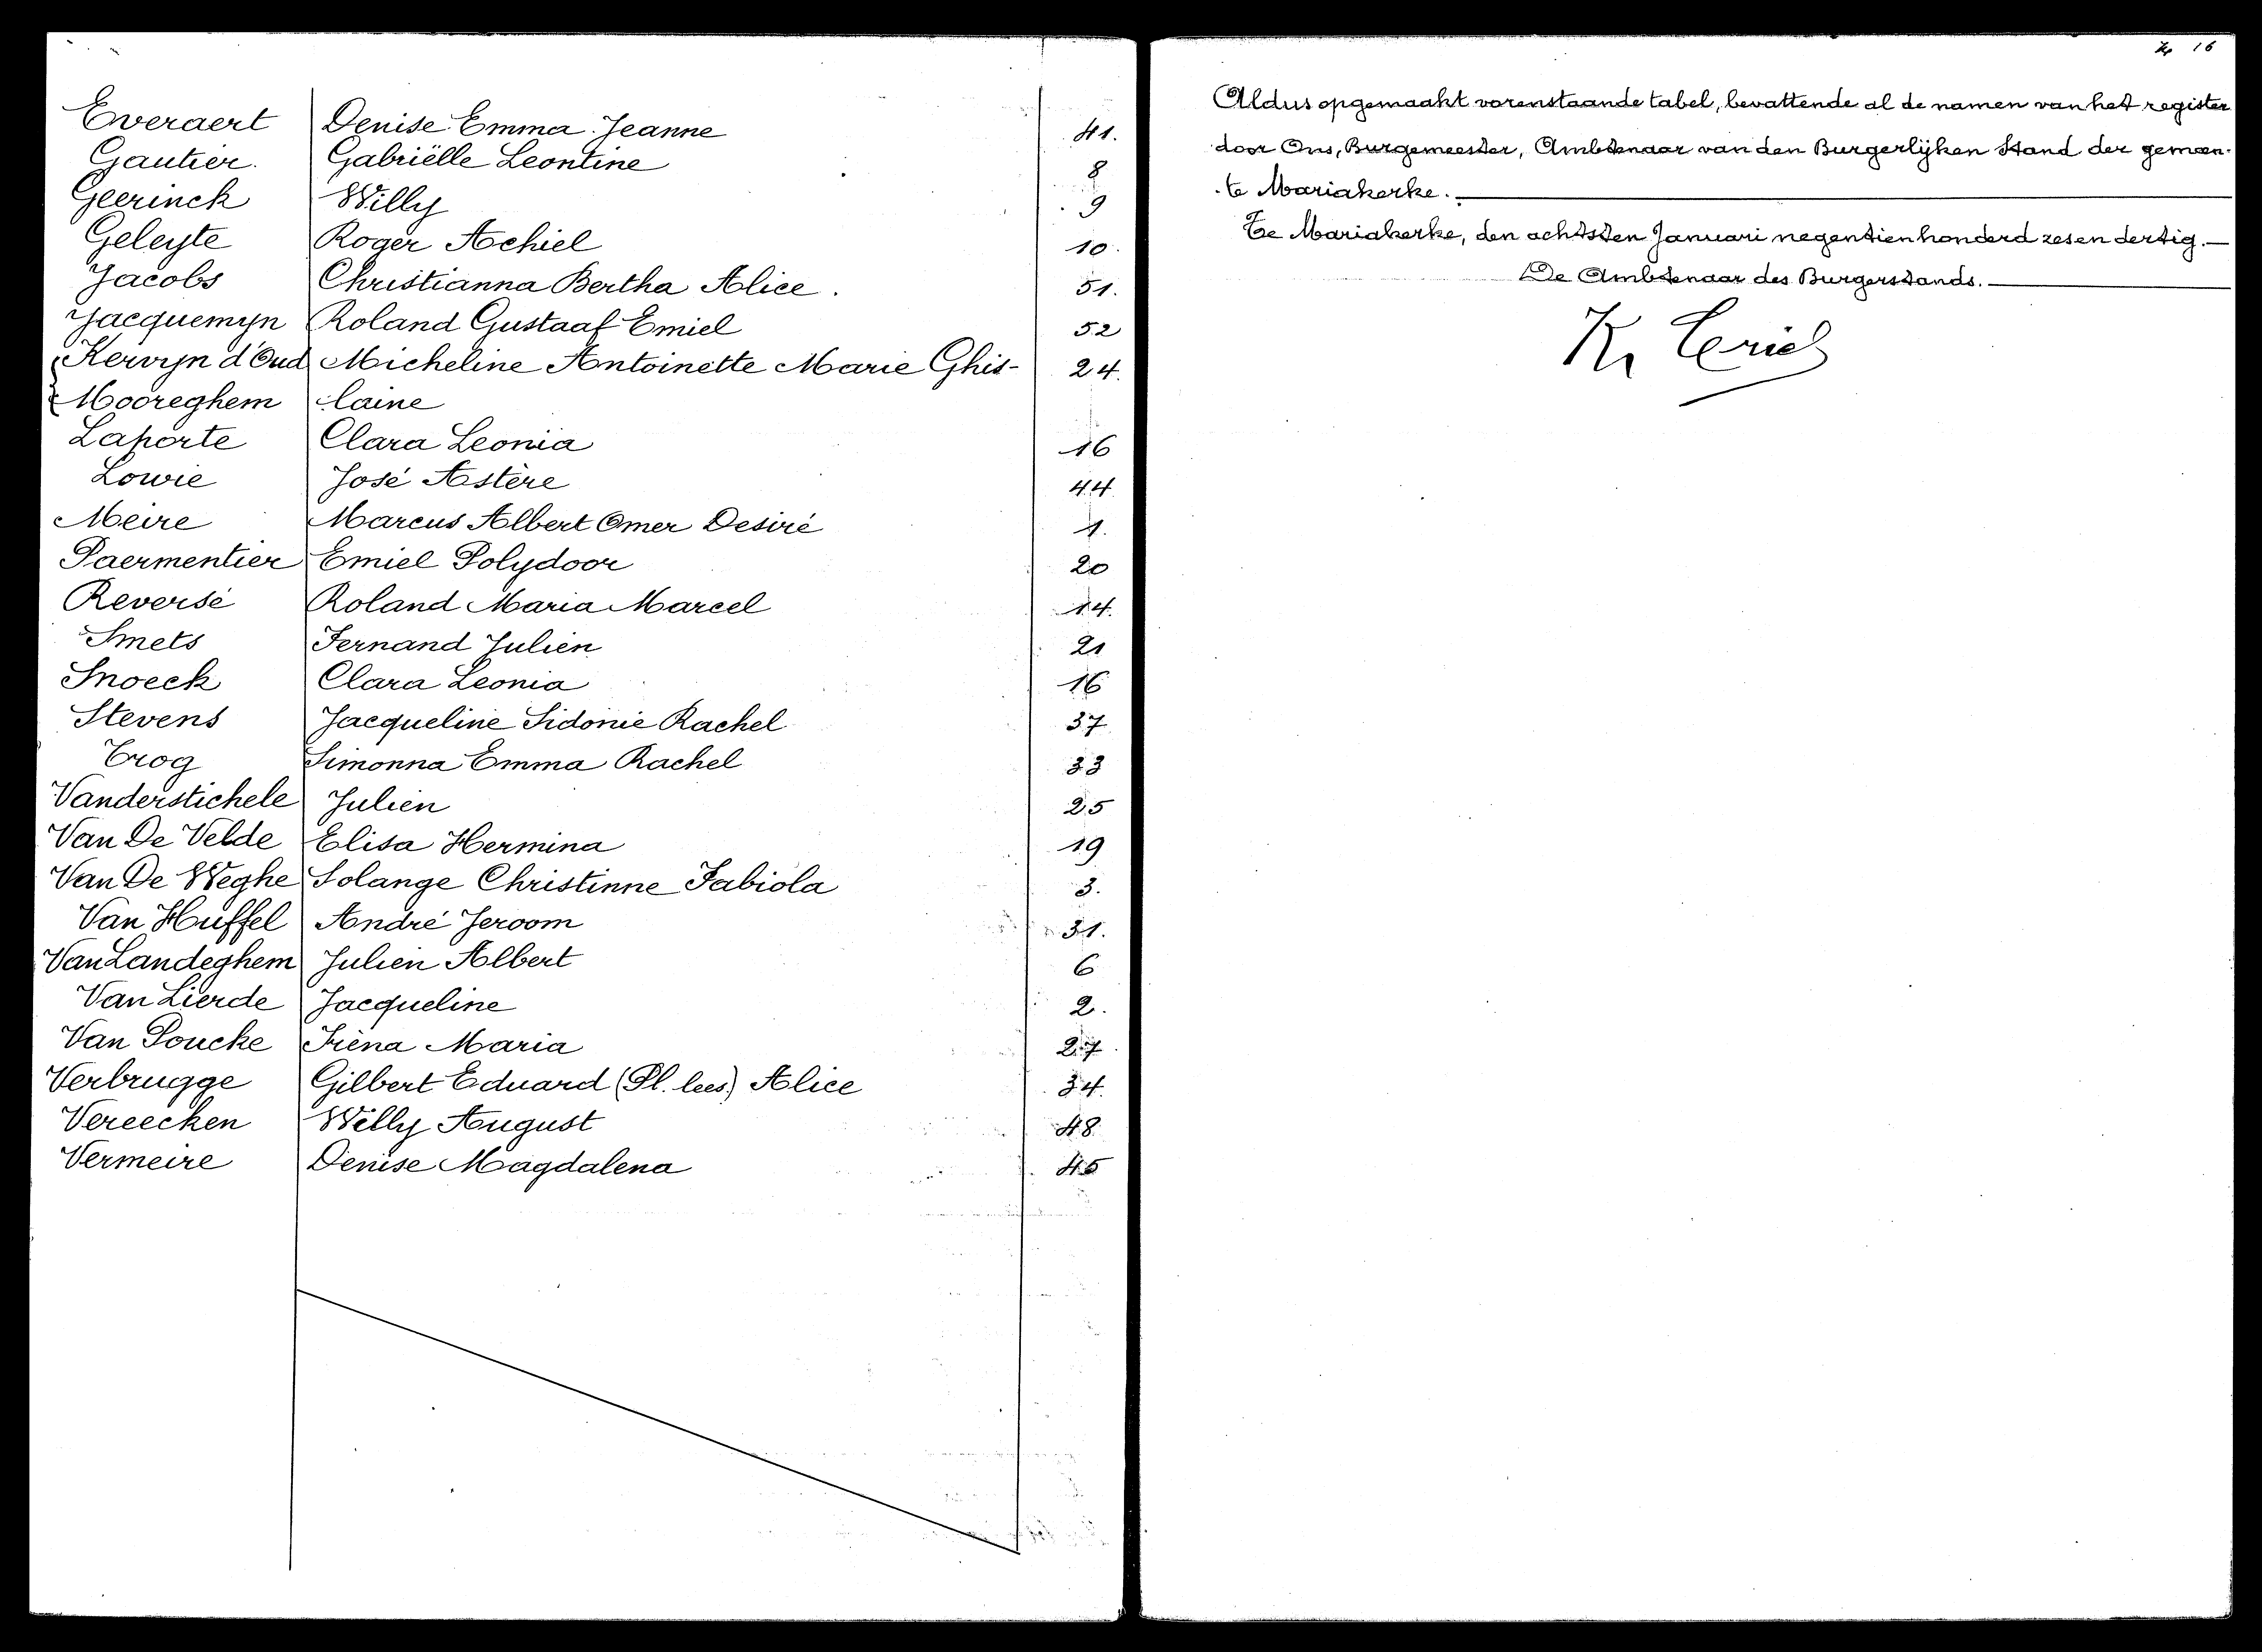 Everaert Denise Emma Jeanne 41.
Gautier. Gabriëlle Leontine 8
Geerinck Willy 9
Geleyte Roger Achiel 10.
Jacobs Christianna Bertha Alice. 51.
Jacquemyn Roland Gustaaf Emiel 52
Kervyn d'Oud Micheline Antoinette Marie Ghis- 24.
Mooreghem laine
Laporte Clara Leonia 16
Lowie José Astère 44.
Meire Marcus Albert Omer Desiré 1.
Paermentier Emiel Polydoor 20
Reversé Roland Maria Marcel 14.
Smets Fernand Julien 21
Snoeck Clara Leonia 16
Stevens Jacqueline Sidonie Rachel 37
Trog Simonna Emma Rachel 33
Vanderstichele Julien 25
Van De Velde Elisa Hermina 19
Van De Weghe Solange Christinne Fabiola 3.
Van Huffel André Jeroom 31.
Van Landeghem Julien Albert 6
Van Lierde Jacqueline 2.
Van Poucke Irèna Maria 27
Verbrugge Gilbert Eduard (Pl. lees) Alice 34.
Vereecken Willy August 48.
Vermeire Denise Magdalena 45
16
Aldus opgemaakt vorenstaande tabel, bevattende al de namen van het register
door Ons, Burgemeester, Ambtenaar van den Burgerlijken Stand der gemeen-
-te Mariakerke.
Te Mariakerke, den achtsten Januari negentienhonderd zesen dertig.—
De Ambtenaar des Burgerstands.